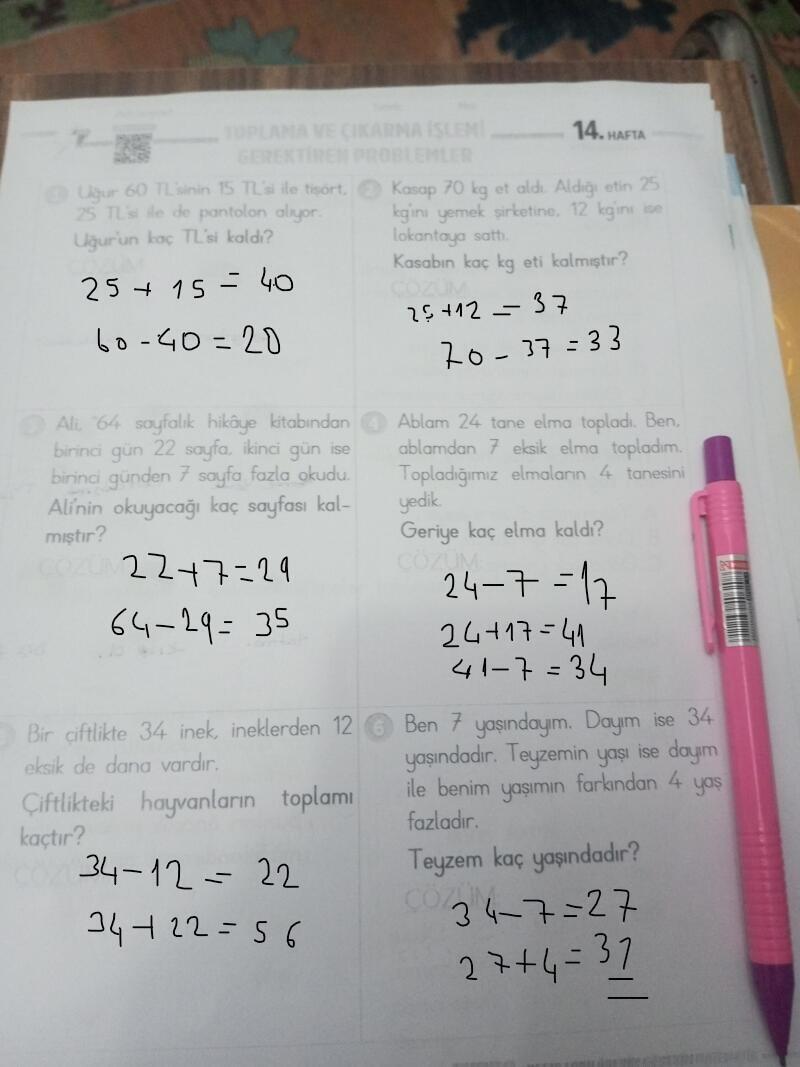 TOPLAMA VE ÇIKARMA İŞLEMİ
GEREKTİREN PROBLEMLER
14. HAFTA
1 Uğur 60 TL'sinin 15 TL'si ile tişört,
25 TL'si ile de pantolon alıyor.
Uğur'un kaç TL'si kaldı?
25 + 15 = 40
60 - 40 = 20
2 Kasap 70 kg et aldı. Aldığı etin 25
kg'ını yemek şirketine, 12 kg'ını ise
lokantaya sattı.
Kasabın kaç kg eti kalmıştır?
ÇÖZÜM
25+12 = 37
70 - 37 = 33
3 Ali, 64 sayfalık hikâye kitabından
birinci gün 22 sayfa, ikinci gün ise
birinci günden 7 sayfa fazla okudu.
Ali'nin okuyacağı kaç sayfası kal-
mıştır?
ÇÖZÜM
22+7=29
64-29= 35
4 Ablam 24 tane elma topladı. Ben,
ablamdan 7 eksik elma topladım.
Topladığımız elmaların 4 tanesini
yedik.
Geriye kaç elma kaldı?
ÇÖZÜM
24-7 =17
24+17=41
41-7=34
Bir çiftlikte 34 inek, ineklerden 12
eksik de dana vardır.
Çiftlikteki hayvanların toplamı
kaçtır?
ÇÖZÜM
34-12 = 22
34+22=56
6 Ben 7 yaşındayım. Dayım ise 34
yaşındadır. Teyzemin yaşı ise dayım
ile benim yaşımın farkından 4 yaş
fazladır.
Teyzem kaç yaşındadır?
ÇÖZÜM
34-7=27
27+4=31